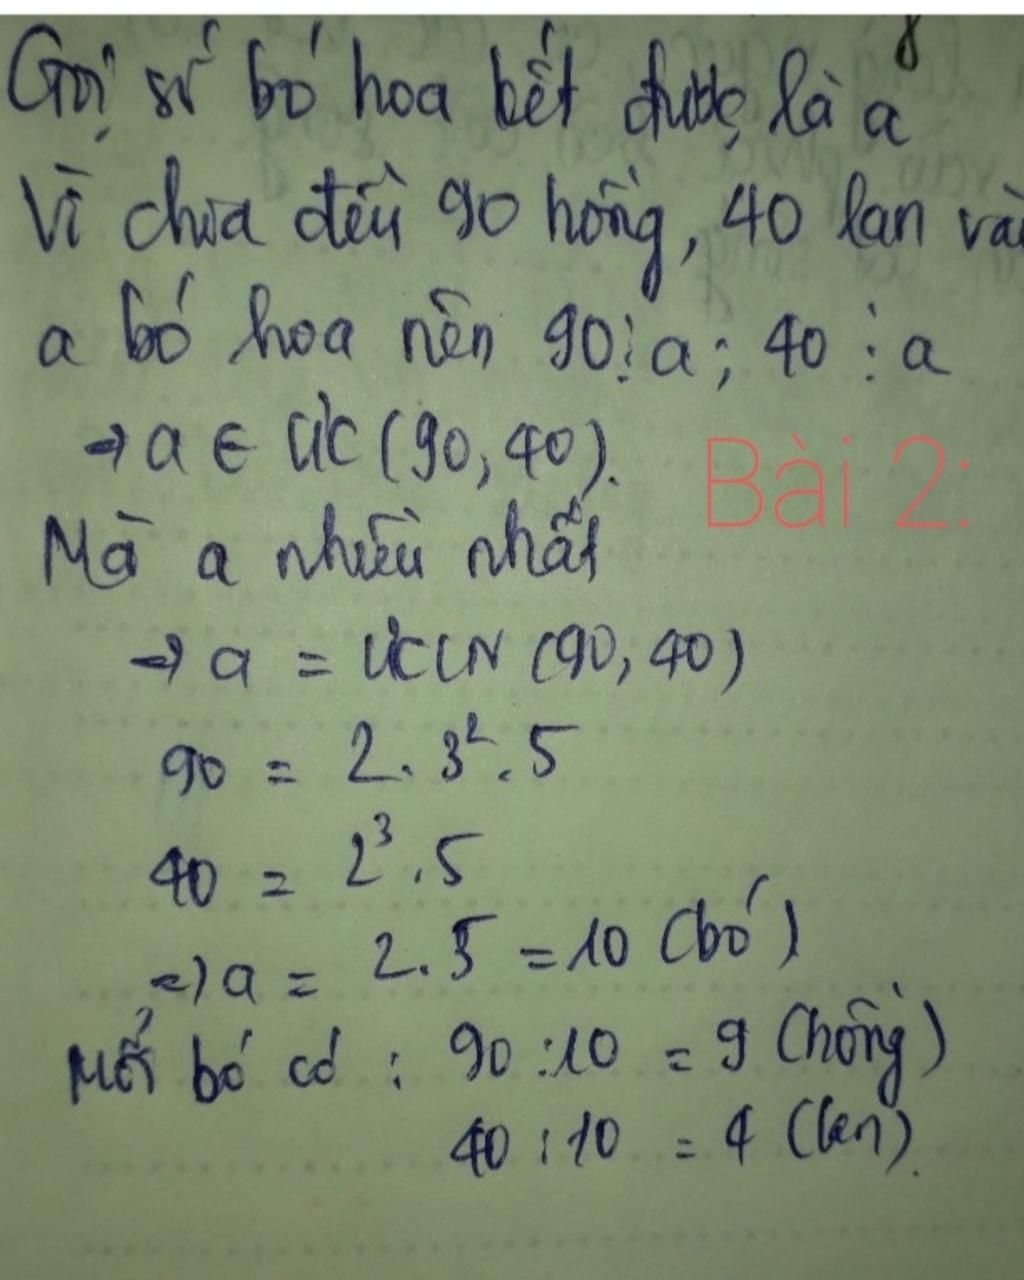 Gọi số bó hoa kết được là a
Vì chia đều 90 hồng, 40 lan vào
a bó hoa nên 90⋮a; 40 ⋮ a
⇒ a ∈ ƯC (90, 40).
Bài 2:
Mà a nhiều nhất
⇒ a = ƯCLN (90, 40)
90 = 2. 3². 5
40 = 2³. 5
⇒ a = 2. 5 = 10 (bó)
Mỗi bó có : 90 : 10 = 9 (hồng)
40 : 10 = 4 (lan).